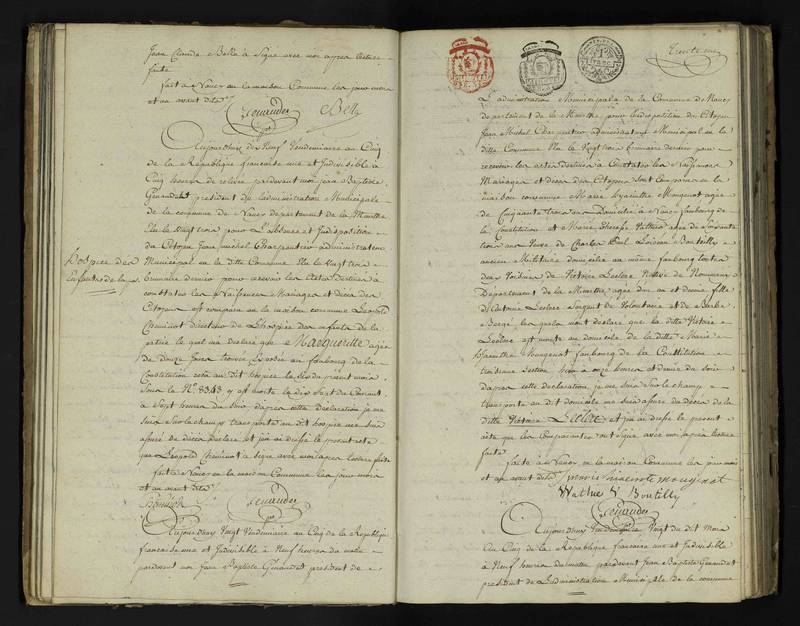 Jean Claude Bella a Signé avec moi apres lecture
faite
fait a Nancy en la maison Commune les jour mois
et an avant dits
Genaudet Bella
Aujourdhuy dix Neuf Vendemiaire an Cinq
de la République française une et Indivisible à
Cinq heures de relevée pardevant moi jean Baptiste
Genaudet président de l'administration Municipale
de la commune de Nancy département de la Meurthe
Elu le vingt trois pour L'absence et Indisposition
du Citoyen Jean michel Charpentier administrateur
Municipal en la ditte Commune Elu le vingt trois
brumaire dernier pour recevoir les Actes Destinés à
constater les Naissances Mariages et décès des
Citoyens est comparu en la maison commune Léopold
Cheminot directeur de L'hospice des enfants de la
patrie le quel m'a déclaré que Marguerite agée
de douze jours trouvée Exposée au faubourg de la
Constitution
Sous le N.º 8343 y est morte le dix Sept du Courant
à Sept heures du Soir d'apres cette Declaration je me
suis sur le champ transporté au dit hospice me suis
assuré du décès déclaré et j'en ai dressé le present acte
que Léopold Cheminot a Signé avec moi apres lecture faite
faite a Nancy en la maison Commune les jour mois
et an avant dits
Cheminot Genaudet
Aujourdhuy Vingt Vendemiaire an Cinq de la République
francaise une et Indivisible à Neuf heures du matin
pardevant moi Jean Baptiste Genaudet president de
hospice des
Enfants de la p.
Trente un
1
franc
L'administration Municipale de la Commune de Nancy
departement de la Meurthe pour Indisposition du Citoyen
Jean Michel Charpentier administrateur Municipal en la
ditte Commune Elu le Vingt trois brumaire dernier pour
recevoir les actes Destinés à Constater les Naissances
Mariages et décès des Citoyens sont Comparus en la
maison commune Marie hyacinthe Mougenot agée
de Cinquante trois ans Domiciliée à Nancy faubourg de
la Constitution et Marie Therese Vathié agée de Soixante
trois ans Veuve de Charles Boutilly
ancien Militaire domiciliée au même faubourg toutes
deux Voisines de Victoire Leclerc Native de Nomeny
Département de la Meurthe agée d'un an et demie fille
d'Antoine Leclerc Sergent de Volontaires et de Barbe
les quelles m'ont déclaré que la ditte Victoire
Leclerc est morte au domicile de la ditte Marie
hyacinthe Mougenot faubourg de la Constitution
troisieme Section hier à onze heures et demie du Soir
d'apres cette declaration je me suis Sur le champ
transporté au dit domicile me suis assuré du décès de la
ditte Victoire Leclerc et j'en ai dressé le present
acte que les Comparantes ont signé avec moi apres lecture
faite
faite à Nancy en la maison Commune les jour mois
et an avant dits marie hiacinte mougenot
Wathié V Boutilly
Genaudet
Aujourdhuy Vendemiaire Vingt du dit Mois
An Cinq de la Republique francaise une et Indivisible
à Neuf heures du matin pardevant Jean Baptiste Genaudet
president de L'administration Municipale de la commune